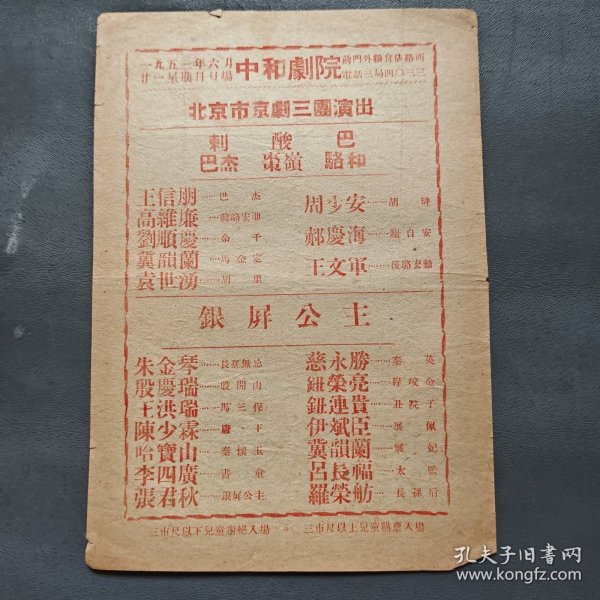 一九五二年六月
廿一星期日日場
中和劇院
前門外糧食店路西
電話三局四〇三三
北京市京劇三團演出
刺 酸 巴
巴杰 棗嶺 駱和
王信朋……巴杰
高維廉……前駱宏勛
劉順慶……余千
冀韻蘭……馬金定
袁世湧……胡里
周少安……胡璉
郝慶海……鮑自安
王文軍……後駱宏勛
銀屏公主
朱金琴……長孫無忌
殷慶瑞……殷開山
王洪瑞……馬三保
陳少霖……唐王
哈寶山……秦懷玉
李四廣……書童
張君秋……銀屏公主
慈永勝……秦英
鈕榮亮……程咬金
鈕連貴……丑院子
伊斌臣……展佩
冀韻蘭……展妃
呂長福……太監
羅榮舫……長孫后
三市尺以下兒童謝絕入場
三市尺以上兒童購票入場
孔夫子旧書网
www.kongfz.com